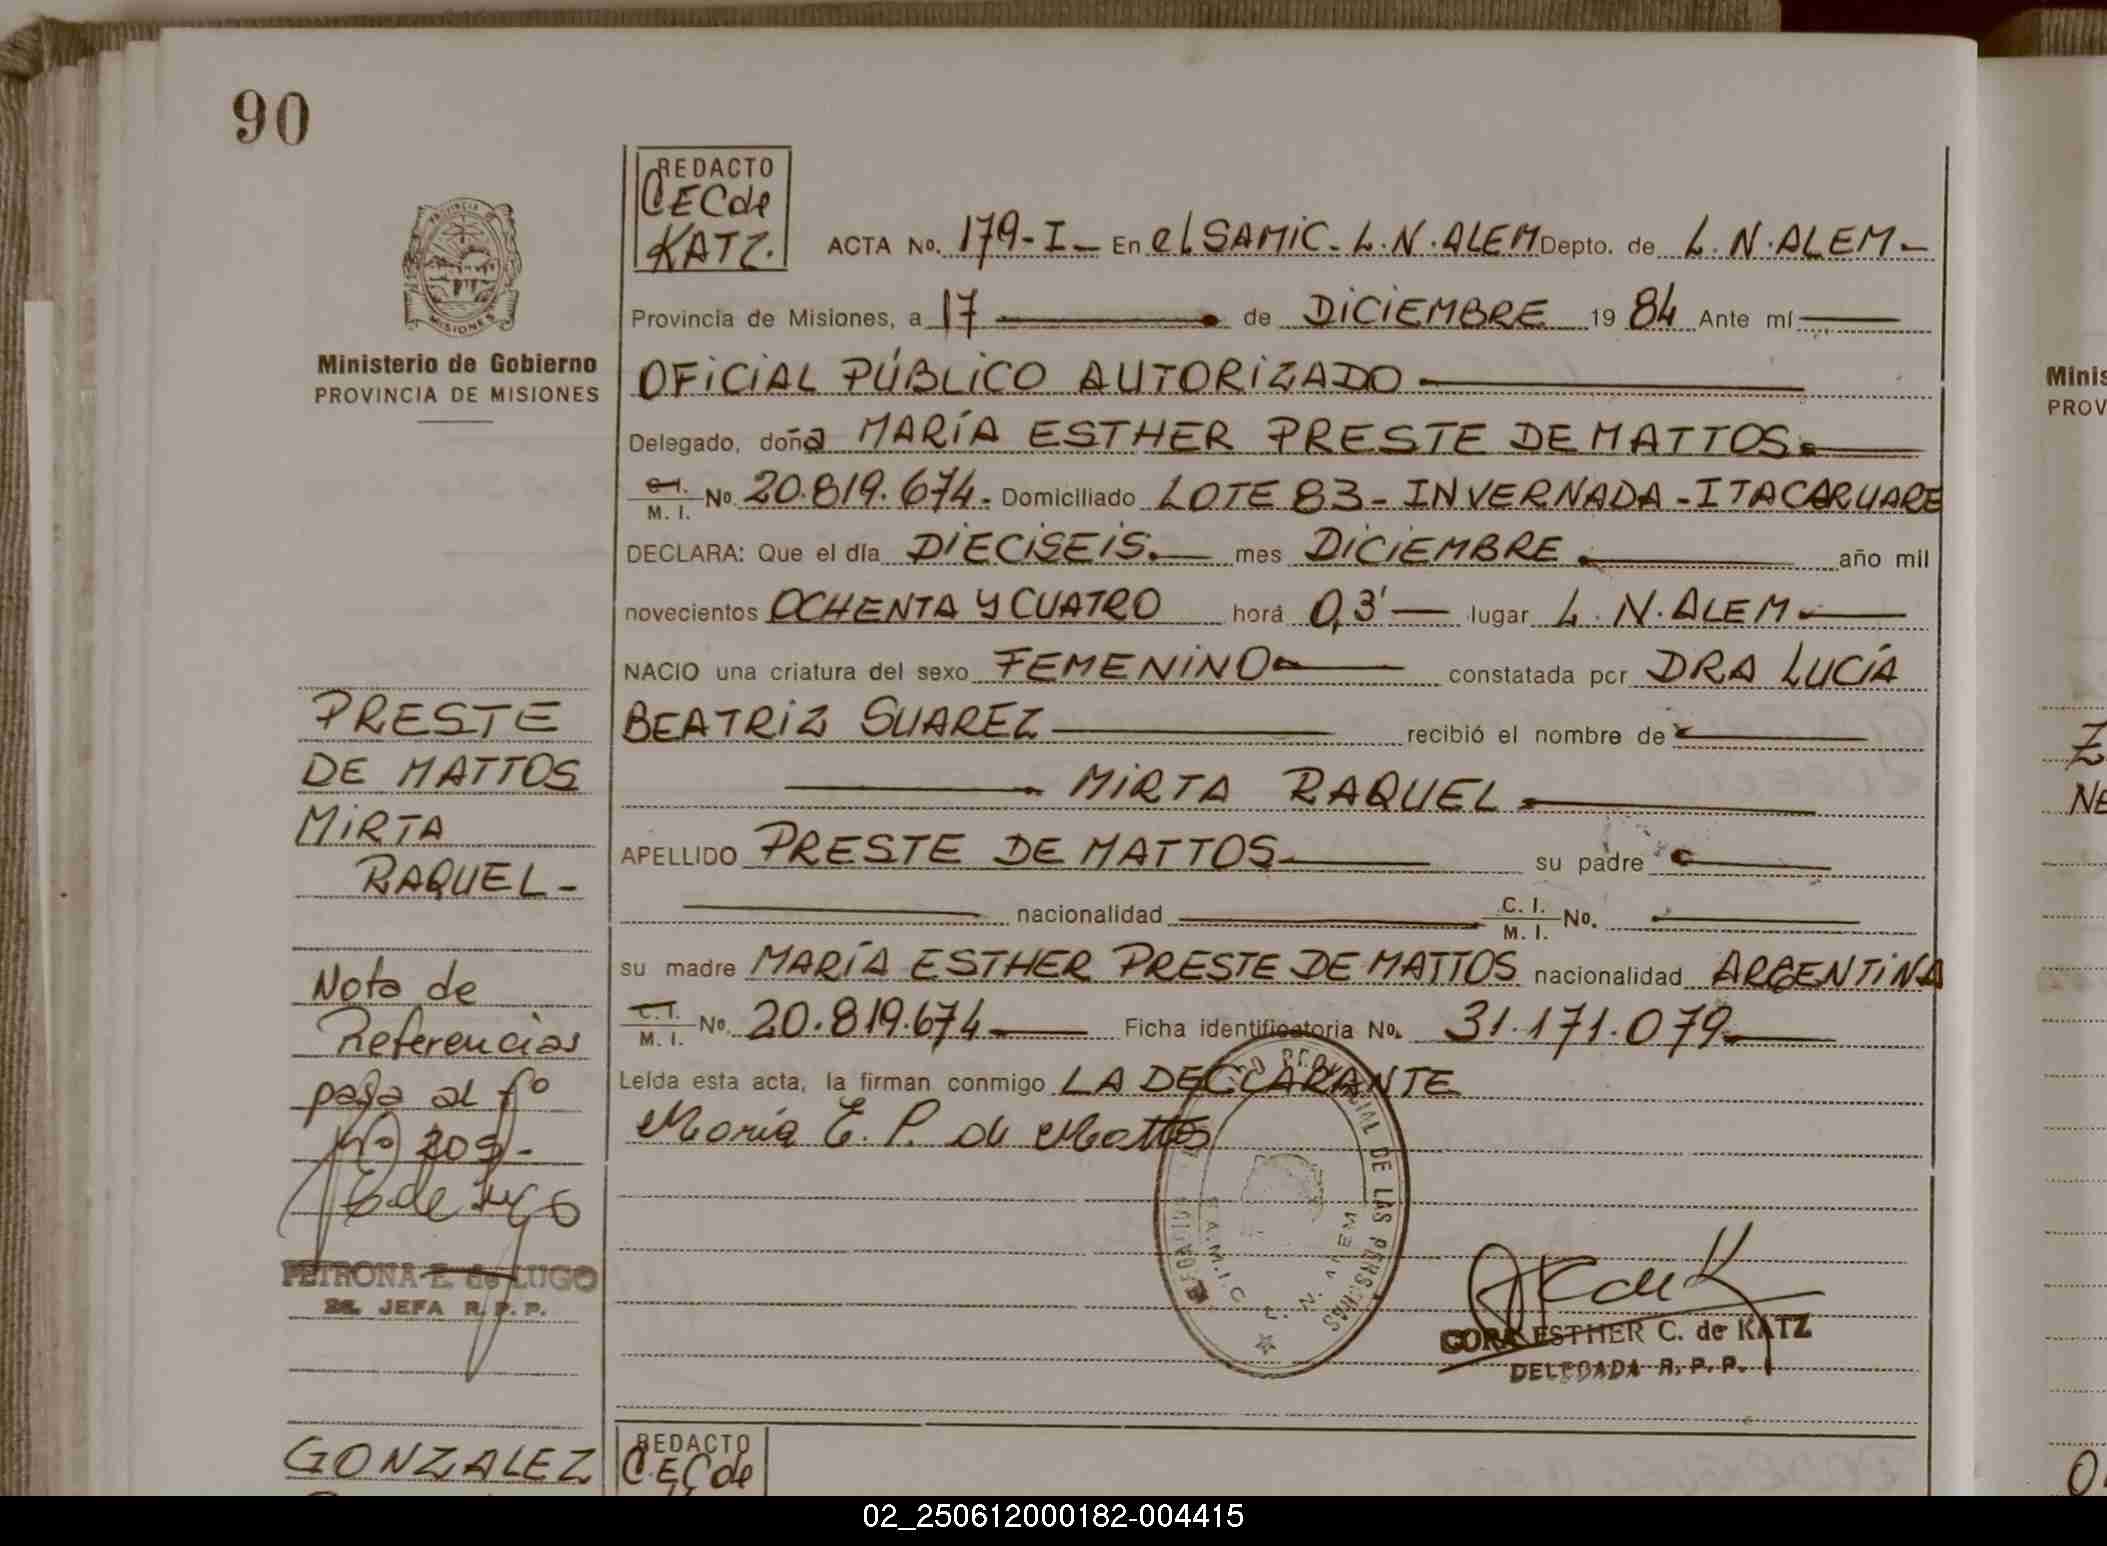 90
REDACTO
CECde
KATZ.
ACTA No. 179-I- En el SAMIC-L.N.ALEM Depto. de L.N.ALEM-
PROVINCIA DE
MISIONES
Ministerio de Gobierno
PROVINCIA DE MISIONES
Provincia de Misiones, a 17 de DICIEMBRE 1984 Ante mí
OFICIAL PÚBLICO AUTORIZADO
Delegado, doña MARÍA ESTHER PRESTE DE MATTOS.
C.I. M.I. No. 20.819.674- Domiciliado LOTE 83-INVERNADA-ITACARUARE
DECLARA: Que el día DIECISEIS. mes DICIEMBRE. año mil
novecientos OCHENTA Y CUATRO horá 0,3' lugar L.N.ALEM
NACIO una criatura del sexo FEMENINO constatada por DRA LUCÍA
BEATRIZ SUAREZ recibió el nombre de
MIRTA RAQUEL
APELLIDO PRESTE DE MATTOS su padre
nacionalidad C.I. M.I. No.
su madre MARÍA ESTHER PRESTE DE MATTOS nacionalidad ARGENTINA
C.I. M.I. No. 20.819.674 Ficha identificatoria No. 31.171.079
Leída esta acta, la firman conmigo LA DECLARANTE
María E. P. de Mattos
PRESTE
DE MATTOS
MIRTA
RAQUEL-
Nota de
Referencias
pasa al fº
Nº 209-
E de Lugo
PETRONA E. de LUGO
2a. JEFA R.P.P.
PROVINCIAL DE LAS PERSONAS
S.A.M.I.C. L. N. ALEM
CORA ESTHER C. de KATZ
DELEGADA R.P.P.
GONZALEZ
REDACTO
C.ECde
Minis
PROV
NE
02_250612000182-004415